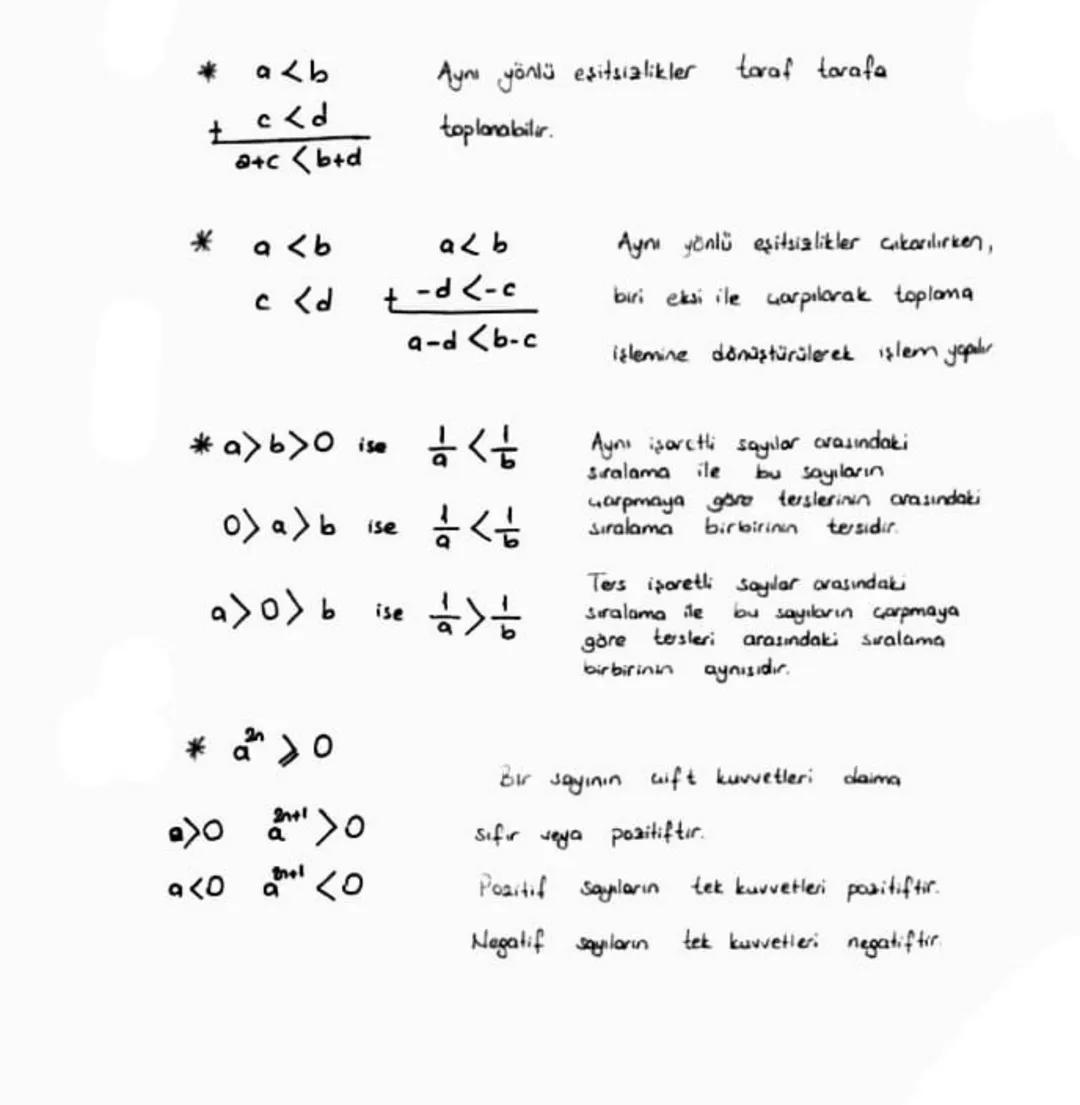 * a<b Aynı yönlü eşitsizlikler taraf tarafa
+ c<d toplanabilir.
a+c<b+d
* a<b a<b Aynı yönlü eşitsizlikler çıkarılırken,
c<d + -d<-c biri eksi ile çarpılarak toplama
a-d<b-c işlemine dönüştürülerek işlem yapılır
* a>b>0 ise 1/a < 1/b Aynı işaretli sayılar arasındaki
sıralama ile bu sayıların
çarpmaya göre terslerinin arasındaki
0>a>b ise 1/a < 1/b sıralama birbirinin tersidir.
Ters işaretli sayılar arasındaki
a>0>b ise 1/a > 1/b sıralama ile bu sayıların çarpmaya
göre tersleri arasındaki sıralama
birbirinin aynısıdır.
* a²ⁿ ⩾ 0
Bir sayının çift kuvvetleri daima
a>0 a²ⁿ⁺¹ >0 sıfır veya pozitiftir.
a<0 a²ⁿ⁺¹ <0 Pozitif sayıların tek kuvvetleri pozitiftir.
Negatif sayıların tek kuvvetleri negatiftir.